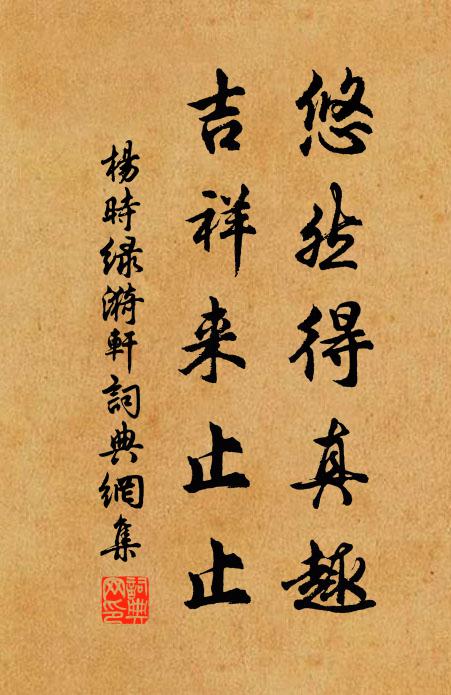 悠然得真趣
吉祥来止止
楊時緑漪軒詞典網集
詞典網印